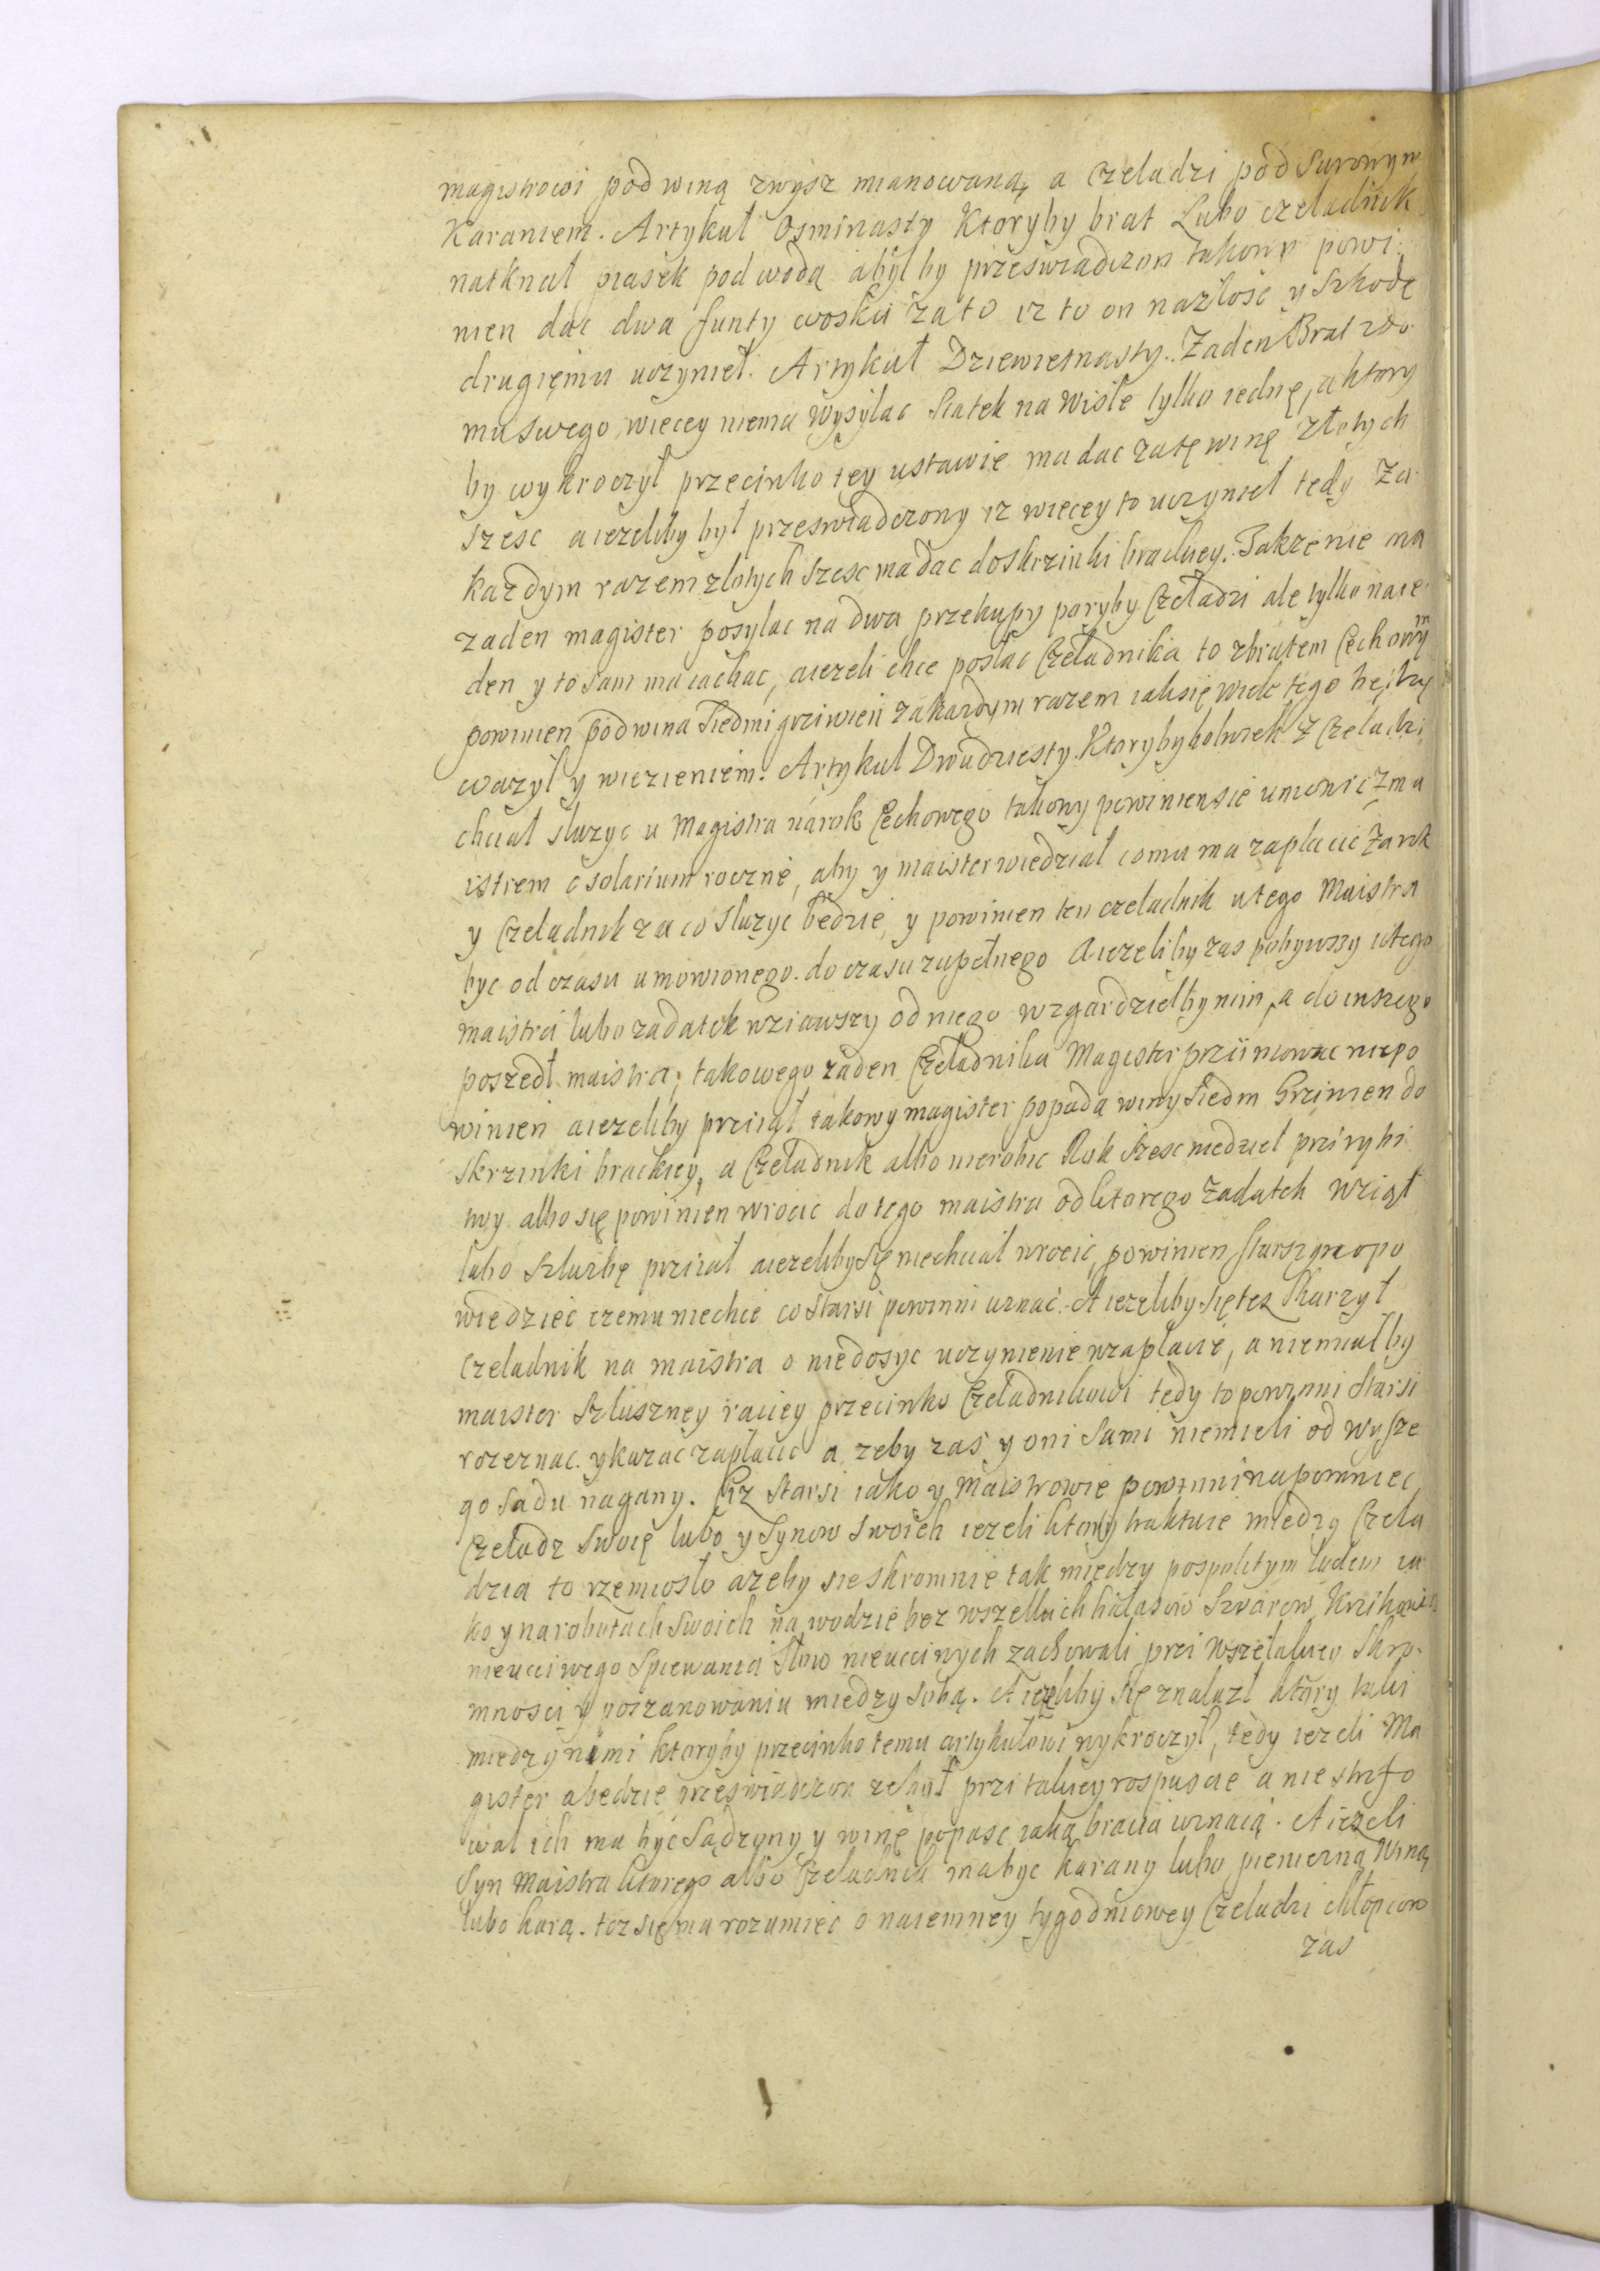 magistrowi pod winą zwysz mianowaną, a Czeladzi pod Surowym
Karaniem. Artykuł Osminasty Ktoryby brat Lubo czeladnik
natknał piasek pod wodą abył by przeswiadczon takowy powi
nien dac dwa funty wosku zato iz to on nazłosc y Szkodę
drugięmu uczynieł. Artykuł Dziewietnasty. Zaden Brat zdo
mu swego wiecey niema wysylac Siatek na Wisle tylko iednę, a ktory
by wykroczył przeciwko tey ustawie ma dac zatę winę złotych
szesc a iezeliby był przeswiadczony iz wiecey to uczynieł tedy za
Kazdym razem złotych szesc ma dac do skrzinki brackiey. Takze nie ma
zaden magister posylac na dwa przekupy poryby Czeladzi ale tylko na ie
den y to sam ma iachac, a iezeli chce posłac Czeladnika to zbratem Cechowym
powinien pod wina Siedmi grziwien za kazdym razem iak się wiele tego bę
wazył y wiezieniem. Artykuł Dwudziesty. Ktorybykolwiek z Czeladzi
chciał sluzyc u Magistra na rok Cechowego takowy powinien sie umowic z ma
istrem o solarium roczne, aby y maister wiedział comu ma zaplacic za rok
y Czeladnik za co sluzyc bedzie, y powinien ten czeladnik u tego Maistra
byc od czasu umowionego do czasu zupełnego A iezeliby zas pobywszy u tego
maistra lubo zadatek wziawszy od niego wzgardziełby nim, a do inszego
poszedł maistra; takowego zaden Czeladnika Magister prziimowac niepo
winien a iezeliby prziiął takowy magister popada winy Siedm Grziwien do
skrzinki brackiey, a Czeladnik albo nierobic Rok szesc niedziel przi rybi
twy albo się powinien wrocic do tego maistra od ktorego zadatek wziął
lubo Szluzbę prziiał a iezeliby się niechciał wrocic, powinien starszym opo
wiedziec czemu niechce co starsi powinni uznac. A iezeliby się tez skarzył
Czeladnik na maistra o niedosyc uczynienie wzaplacie, a niemiałby
maister Szluszney raciey przeciwko Czeladnikowi tedy to powinni starsi
rozeznac y kazac zaplacic a zeby zas y oni sami niemieli od wysze
go sadu nagany. Ciz starsi iako y Maistrowie powinni napomniec
Czeladz swoię lubo y Synow swoich iezeli ktory traktuie miedzy Czela
dzia to rzemiosło azeby sie skromnie tak między pospolitym ludem ia
ko y na robotach swoich na wodzie bez wszelkich hałasow Swarow Krzikania
nieucciwego spiewania Słow nieucciwych zachowali przi wszelakiey skro
mnosci y poszanowaniu miedzy sobą. A iezeliby się znalazł ktory taki
miedzy nimi ktoryby przeciwko temu artykułowi wykroczył, tedy iezeli Ma
gister a bedzie przeswiadczon ze był przi takiey rospuscie a nie strofo
wał ich ma być Sądzony y winę popasc iaką bracia uznaią. A iezeli
Syn Maistra ktorego albo Czeladnik ma byc karany lubo pieniezną Winą,
lubo karą. toz się ma rozumiec o naiemney tygodniowey Czeladzi chłopcow
zas